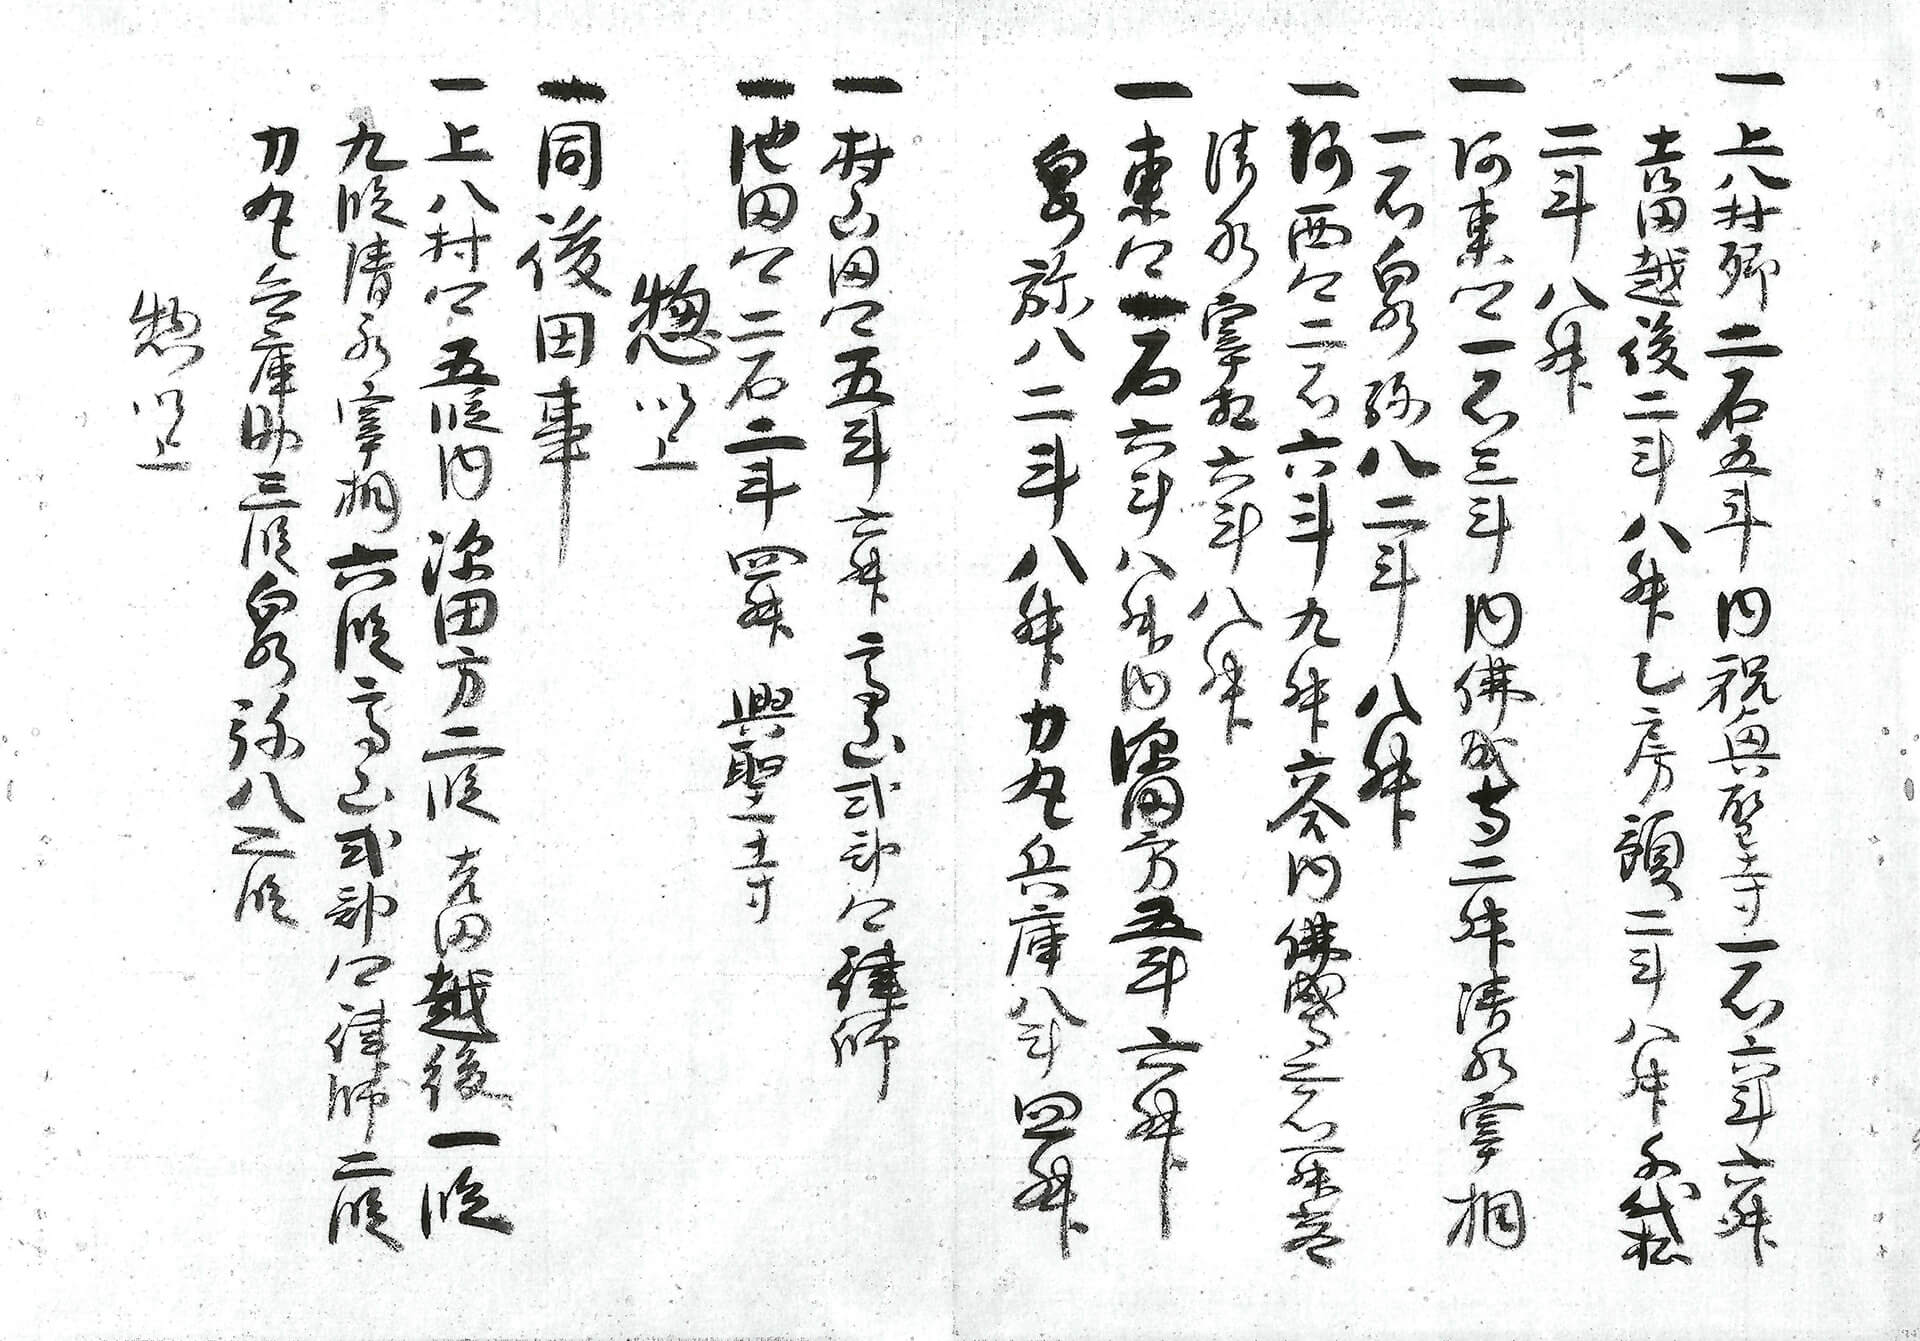 一上八村郷二石五斗内祝興聖寺一石六斗六升
吉田越後二斗八升乙房頭二斗八升千代松
二斗八升
一河東公一石三斗内佛成寺二升清水宰相
一石泉弥八二斗八升
一河西公二石六斗九升内佛成寺二石一升
清水宰相六斗八升
一東公一石六斗八升内深田方五斗六升
泉弥八二斗八升力丸兵庫八斗四升
一村山田公五斗六升高山式部公律師
一池田公二石二斗四升 興聖寺
惣以上
一同後田事
一上八村公五段内 深田方二段 吉田越後一段
九段清水宰相六段高山式部公律師二段
力丸兵庫助三段泉弥八二段
惣以上